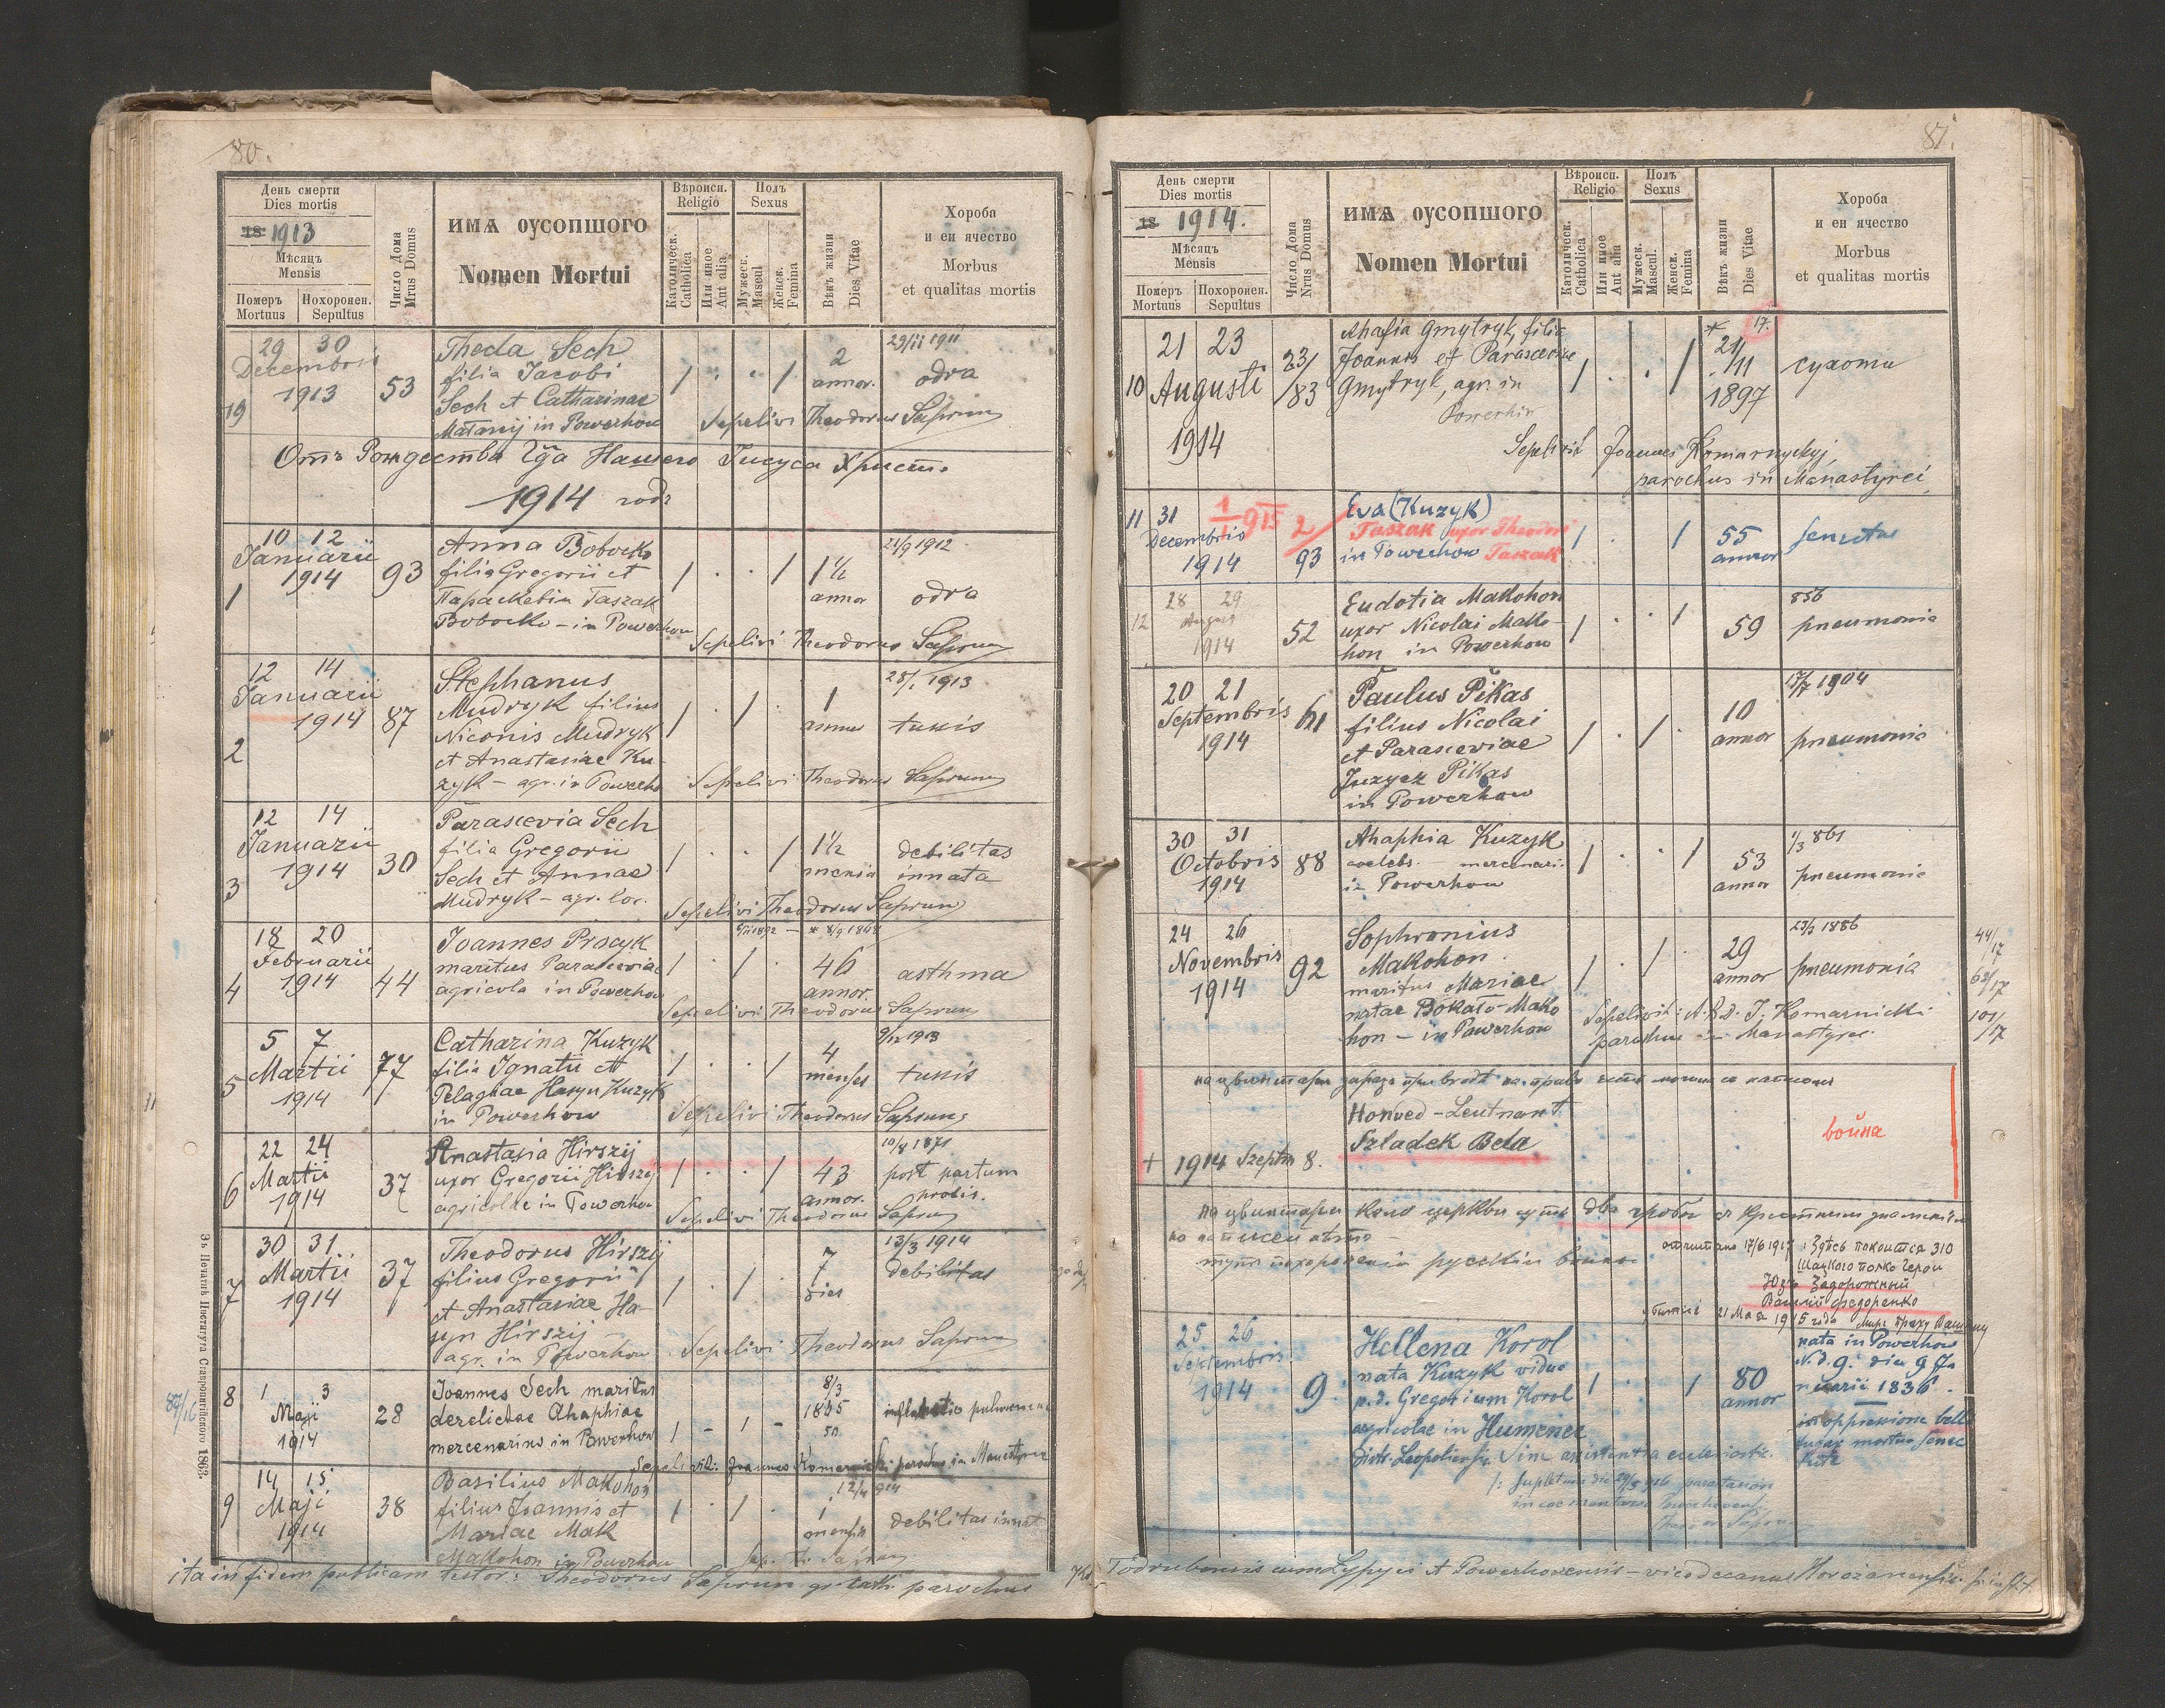 80.
День смерти
Dies mortis
18 1913
Мѣсяцъ
Mensis
Померъ
Mortuus
Похоронен.
Sepultus
Число Дома
Nrus Domus
ИМѦ ОУСОПШОГО
Nomen Mortui
Вѣроисп.
Religio
Католическ.
Catholica
Или иное
Aut alia
Полъ
Sexus
Мужеск.
Mascul
Женск.
Femina
Вѣкъ жизни
Dies Vitae
Хороба
и еи ячество
Morbus
et qualitas mortis
29 30
Decembris
1913
19
53
Thecla Sech
filia Jacobi
Sech et Catharinae
in Powerhow
2
annor.
23/11 1911
odra
Sepelivi Theodorus Saprun
Отъ Рождества Нашего Іисуса Христа
1914 года
10 12
Januarii
1914
1
93
Anna Bobocko
filia Gregorii et
Параскевіи Taszak
Bobocko - in Powerhow
1 1/2
annor
24/9 1912
odra
Sepelivi Theodorus Saprun
12 14
Januarii
1914
2
87
Stephanus
Mudryk filius
Niconis Mudryk
et Anastasiae Ku-
zyk - agr. in Powerhow
1
annus
28/1 1913
tussis
Sepelivi Theodorus Saprun
12 14
Januarii
1914
3
30
Parascevia Sech
filia Gregorii
Sech et Annae
Mudryk - agr. loc.
1 1/2
mensis
debilitas
innata
Sepelivi Theodorus Saprun
18 20
Februarii
1914
4
44
Joannes Procyk
maritus Parasceviae
agricola in Powerhow
46
annor.
asthma
Sepelivi Theodorus Saprun
5 7
Martii
1914
5
77
Catharina Kuzyk
filia Ignatii et
Pelagiae Hasyn Kuzyk
in Powerhow
4
menses
9/11 1913
tussis
Sepelivi Theodorus Saprun
22 24
Martii
1914
6
37
Anastasia Hirszij
uxor Gregorii Hirszij
agricolae in Powerhow
43
annor.
10/8 1871
post partum
prolis.
Sepelivi Theodorus Saprun
30 31
Martii
1914
7
37
Theodorus Hirszij
filius Gregorii
et Anastasiae Ha-
syn Hirszij -
agr. in Powerhow
7
dies
13/3 1914
debilitas
Sepelivi Theodorus Saprun
8
1 3
Maji
1914
28
Joannes Sech maritus
derelictae Ahaphiae
mercenarius in Powerhow
8/3
1865
50
Sepelivit: Joannes Komarnicki parochus in Manastyrec
14 15
Maji
1914
9
38
Basilius Makohon
filius Joannis et
Mariae Mak
Makohon in Powerhow
12/4 914
1
mensis
debilitas innat
Sep. Th. Saprun
ita in fidem publicam testor: Theodorus Saprun gr. cath. parochus
Зъ Печатнѣ Института Ставропигійского 1863.
81.
День смерти
Dies mortis
18 1914.
Мѣсяцъ
Mensis
Померъ
Mortuus
Похоронен.
Sepultus
Число Дома
Nrus Domus
ИМѦ ОУСОПШОГО
Nomen Mortui
Вѣроисп.
Religio
Католическ.
Catholica
Или иное
Aut alia
Полъ
Sexus
Мужеск.
Mascul.
Женск.
Femina
Вѣкъ жизни
Dies Vitae
Хороба
и еи ячество
Morbus
et qualitas mortis
21 23
10 Augusti
1914
23/
/83
Ahafia Gmytryk, filia
Joannis et Parasceviae
Gmytryk, agr. in
Powerhiv
* 17.
21/
/11
1897
сухоти
Sepelivit Joannes Komarnyckyj,
parochus in Manastyrci
11 31
Decembris
1914
1/1 915
2/
93
Eva (Kuzyk)
Taszak uxor Theodori
in Powerhow Taszak
55
annor
senectus
28 29
12 August
1914
52
Eudotia Makohon
uxor Nicolai Mako-
hon in Powerhow
59
856
pneumonia
20 21
Septembris
1914
61
Paulus Pikas
filius Nicolai
et Parasceviae
Juzycz Pikas
in Powerhow
10
annor
13/7 1904
pneumonia
30 31
Octobris
1914
88
Ahaphia Kuzyk
coelebs - mercenari-
in Powerhow
53
annor
1/3 861
pneumonia
24 26
Novembris
1914
92
Sophronius
Makohon
maritus Mariae
natae Bokalo-Mako
hon - in Powerhow
29
annor
23/3 1886
pneumonia
44/17
63/17
101/17
Sepelivit: A.R.D. J. Komarnicki
parochus in Manastyrec
Honved - Leutnant
Szladek Bela
война
+ 1914 Szeptm 8.
на цвинтари коло церкви суть два гробы
тутъ похоронени рускіи воины
отчитано 17/6 1917: Здѣсь покоится 310
Шацкого полка Герои
Задорожный
Василій Федоренко
21 Мая 1915 года Миръ праху Вашему
25 26
Septembris
1914
9
Hellena Korol
nata Kuzyk vidua
p.d. Gregorium Korol
agricolae in Humenec
distr. Leopoliensis Sine assistentia ecclesiastic.
80
annor
nata in Powerhow
N.d. 9. die 9 Ja
nuarii 1836.
in oppressione belli
mortua senec
Podzubownis cum Lypyci et Powerhovensis - vicedecanus Horozanensis